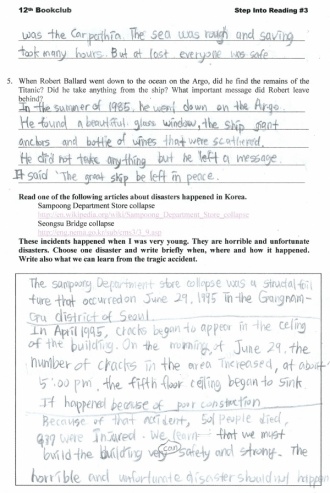 12th Bookclub Step Into Reading #3
was the Carpathia. The sea was rough and saving
took many hours. But at last everyone was safe
5. When Robert Ballard went down to the ocean on the Argo, did he find the remains of the
Titanic? Did he take anything from the ship? What important message did Robert leave
behind?
In the summer of 1985, he went down on the Argo.
He found a beautiful glass window, the ship giant
anchors and bottle of wines that were scattered.
He did not take anything but he left a message
It said "The great ship be left in peace.
Read one of the following articles about disasters happened in Korea.
Sampoong Department Store collapse
http://en.wikipedia.org/wiki/Sampoong_Department_Store_collapse
Seongsu Bridge collapse
These incidents happened when I was very young. They are horrible and unfortunate
disasters. Choose one disaster and write briefly when, where and how it happened.
Write also what we can learn from the tragic accident.
The sampoong Department store collapse was a structural fail
ture that occurred on June 29, 1995 in the Gangnam-
Gru district of Seoul
In April 1995, cracks began to appear in the celing
of the building. On the morning of June 29, the
number of cracks in the area increased, at about
5:00 pm, the fifth floor ceiling began to sink
It happened because of poor construction
Because of that accident, 501 people died,
937 were injured. We learn that we must
build the building very safety and strong. The
can
horrible and unfortunate disaster should not happen